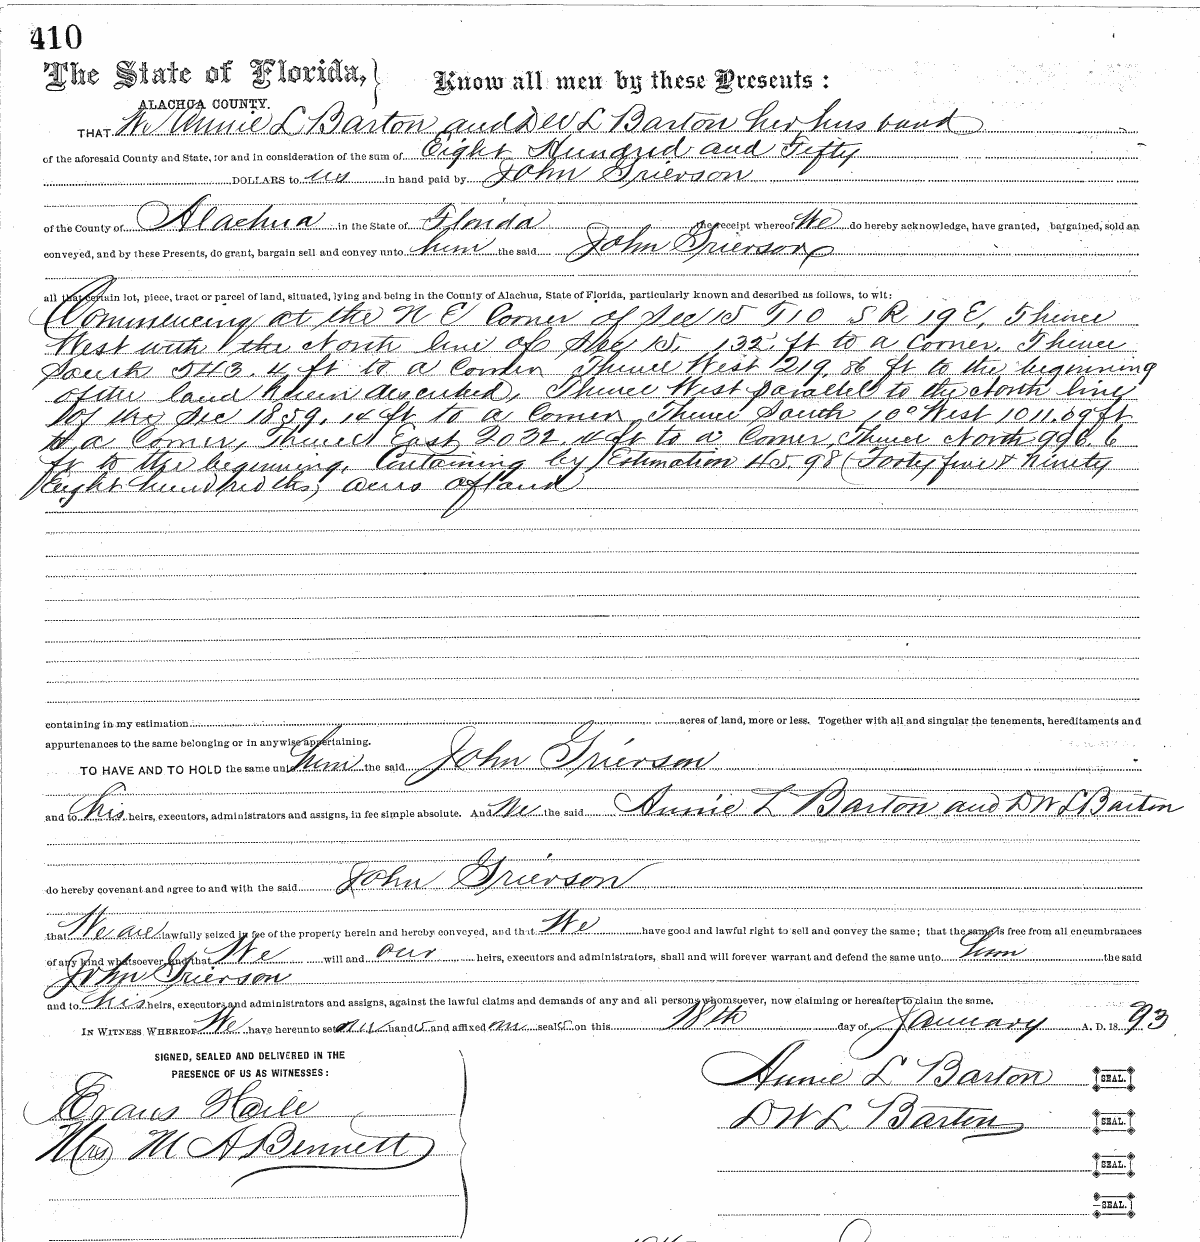 410
The State of Florida,
Know all men by these Presents:
ALACHUA COUNTY.
THAT We Annie L Barton and D W L Barton her husband
of the aforesaid County and State, for and in consideration of the sum of Eight Hundred and Fifty
DOLLARS to us in hand paid by John Grierson
of the County of Alachua in the State of Florida the receipt whereof We do hereby acknowledge, have granted, bargained, sold an
conveyed, and by these Presents, do grant, bargain sell and convey unto him the said John Grierson
all that certain lot, piece, tract or parcel of land, situated, lying and being in the County of Alachua, State of Florida, particularly known and described as follows, to wit:
Commencing at the N E Corner of Sec 15 T 10 S R 19 E, Thence
West with the North line of Sec 15, 132 ft to a Corner, Thence
South 543.4 ft to a Corner Thence West 219.86 ft to the beginning
of the land herein described, Thence West parallel to the North line
of the Sec 1859.14 ft to a Corner, Thence South 10° West 1011.09 ft
to a Corner, Thence East 2032.4 ft to a Corner, Thence North 996.6
ft to the beginning, Containing by Estimation 45.98 (Forty five & Ninety
Eight hundredths) acres of land
containing in my estimation acres of land, more or less. Together with all and singular the tenements, hereditaments and
appurtenances to the same belonging or in anywise appertaining.
TO HAVE AND TO HOLD the same unto him the said John Grierson
and to his heirs, executors, administrators and assigns, in fee simple absolute. And We the said Annie L Barton and D W L Barton
do hereby covenant and agree to and with the said John Grierson
that We are lawfully seized in fee of the property herein and hereby conveyed, and that We have good and lawful right to sell and convey the same; that the same is free from all encumbrances
of any kind whatsoever, and that We will and our heirs, executors and administrators, shall and will forever warrant and defend the same unto him the said
John Grierson
and to his heirs, executors and administrators and assigns, against the lawful claims and demands of any and all persons whomsoever, now claiming or hereafter to claim the same.
IN WITNESS WHEREOF We have hereunto set our hands and affixed our seals on this 18th day of January A. D. 18 93
SIGNED, SEALED AND DELIVERED IN THE
PRESENCE OF US AS WITNESSES:
Annie L Barton SEAL.
Evans Haile
D W L Barton SEAL.
Mrs M A Bennett
SEAL.
SEAL.